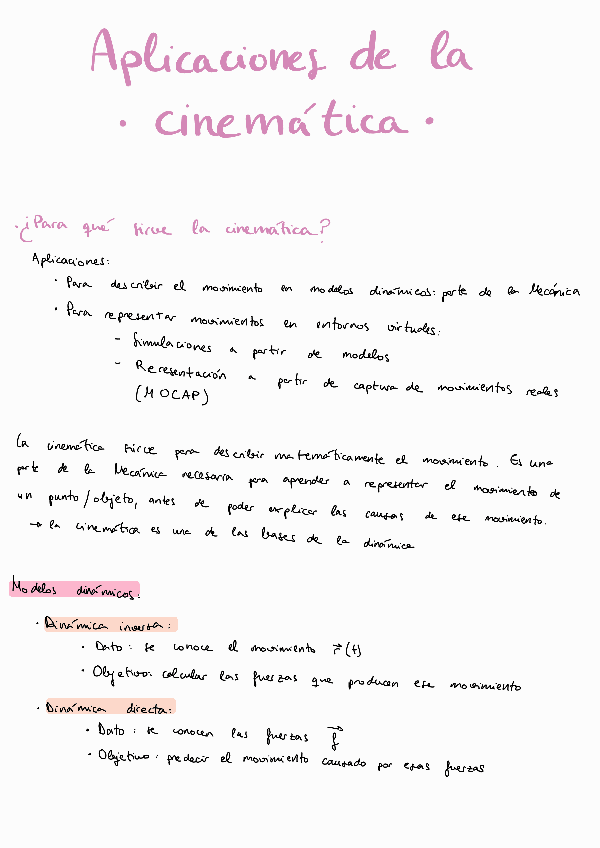 Aplicaciones de la
· cinemática ·
· ¿Para qué sirve la cinemática?
Aplicaciones:
· Para describir el movimiento en modelos dinámicos: parte de la Mecánica
· Para representar movimientos en entornos virtuales:
- Simulaciones a partir de modelos
- Representación a partir de captura de movimientos reales
(MOCAP)
La cinemática sirve para describir matemáticamente el movimiento. Es una
parte de la Mecánica necesaria para aprender a representar el movimiento de
un punto/objeto, antes de poder explicar las causas de ese movimiento.
→ la cinemática es una de las bases de la dinámica
Modelos dinámicos:
· Dinámica inversa:
· Dato: se conoce el movimiento r⃗(t)
· Objetivo: calcular las fuerzas que producen ese movimiento
· Dinámica directa:
· Dato: se conocen las fuerzas f⃗
· Objetivo: predecir el movimiento causado por esas fuerzas